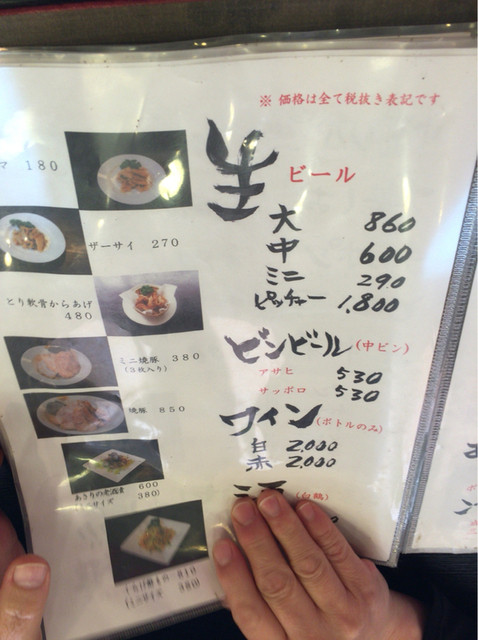 ※ 価格は全て税抜き表記です
マ 180
ザーサイ 270
とり軟骨からあげ
480
ミニ焼豚 380
(3枚入り)
焼豚 850
あさりの老酒漬 600
サイズ 380)
810
380)
生ビール
大 860
中 600
ミニ 290
ピッチャー 1,800
ビンビール(中ビン)
アサヒ 530
サッポロ 530
ワイン(ボトルのみ)
白 2,000
赤 2,000
(白鶴)